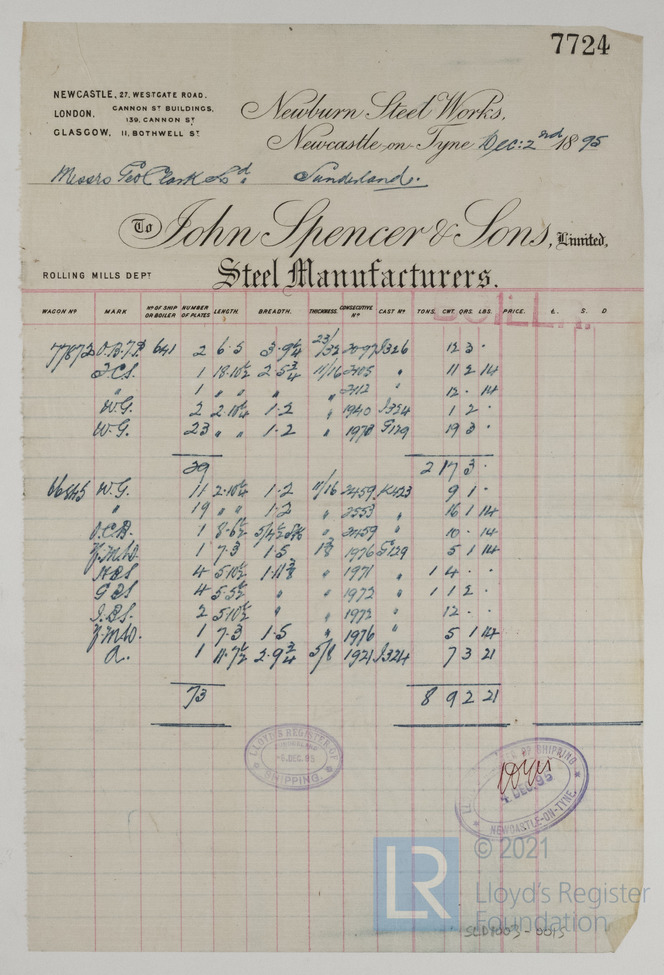 7724
NEWCASTLE, 27, WESTGATE ROAD.
LONDON, CANNON ST BUILDINGS, 139, CANNON ST
GLASGOW, 11, BOTHWELL ST
Newburn Steel Works,
Newcastle-on-Tyne Dec: 2nd 1895
Messrs Geo Clark Ld. Sunderland.
To John Spencer & Sons, Limited,
ROLLING MILLS DEPT Steel Manufacturers.
WAGON No MARK No OF SHIP OR BOILER NUMBER OF PLATES LENGTH. BREADTH. THICKNESS. CONSECUTIVE No CAST No TONS. CWT. QRS. LBS. PRICE. £. S. D
77872 641 2 6·5 3·9¼ 23/32 12 3 ·
2 18·10½ 2·5¾ 11/16 " 11 2 14
" 1 " " " " 2112 " 12 · 14
W.G. 2 2·10¼ 1·2 " 1940 1 2 ·
W.G. 23 " " 1·2 " 1978 19 3 ·
2 17 3 ·
W.G. 11 2·10¼ 1·2 11/16 2459 K423 9 1 ·
" 19 " " 1·2 " 2553 " 16 1 14
O.C.B. 1 8·6½ " 2459 " 10 · 14
1 7·3 1·5 1976 5 1 14
4 5·10½ " 1971 " 1 4 · ·
4 5·5½ " " 1972 " 1 1 2 ·
2 5·10½ " " 1972 " 12 · ·
1 7·3 1·5 " 1976 " 5 1 14
A. 1 11·7½ 2·9¾ 5/8 1921 7 3 21
73 8 9 2 21
LLOYD'S REGISTER OF SHIPPING
SUNDERLAND
DEC. 95
OF SHIPPING
4 DEC. 95
NEWCASTLE-ON-TYNE.
LR
© 2021
Lloyd's Register
Foundation
SLD1003 - 0015